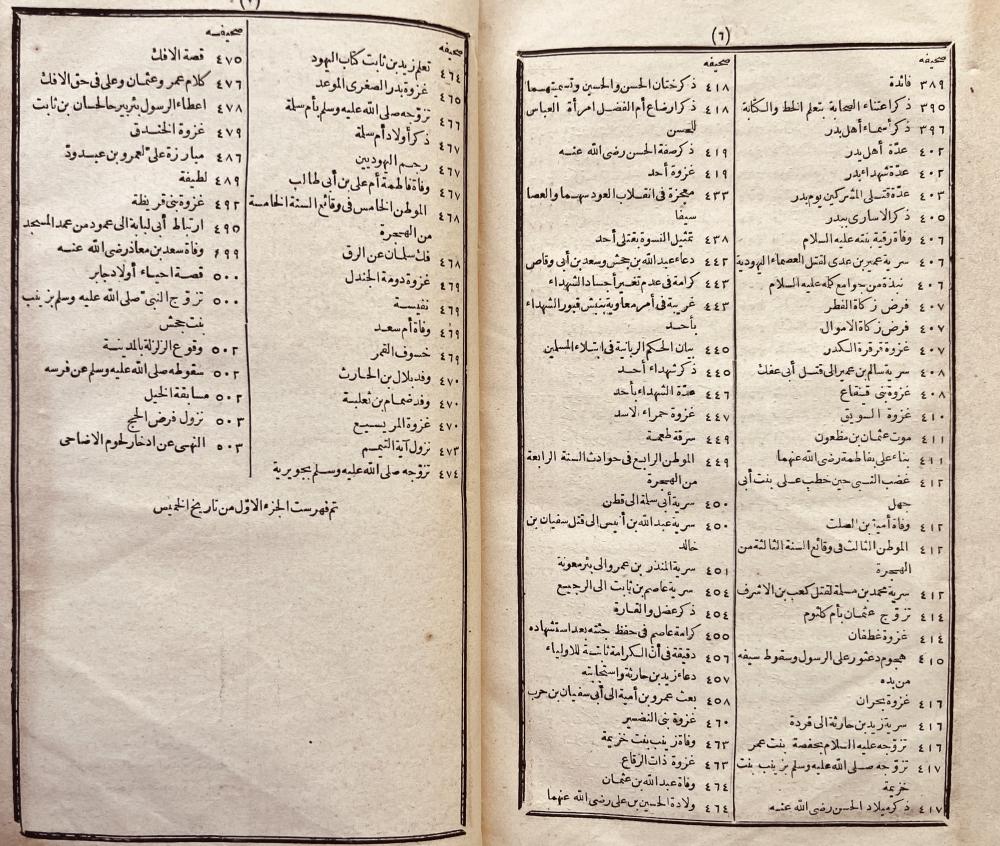 (٦)
صحيفه
٣٨٩ فائدة
٣٩٥ ذكر اعتناء الصحابة بتعلم الخط والكتابة
٣٩٦ ذكر أسماء أهل بدر
٤٠٢ عدّة أهل بدر
٤٠٢ عدّة شهداء بدر
٤٠٣ عدّة قتلى المشركين يوم بدر
٤٠٥ ذكر الاسارى ببدر
٤٠٦ وفاة رقية بنته عليه السلام
٤٠٦ سرية عمير بن عدى لقتل العصماء اليهودية
٤٠٦ نبذة من جوامع كلمه عليه السلام
٤٠٧ فرض زكاة الفطر
٤٠٧ فرض زكاة الاموال
٤٠٧ غزوة قرقرة الكدر
٤٠٨ سرية سالم بن عمير الى قتل أبى عفك
٤٠٨ غزوة بنى قينقاع
٤١٠ غزوة السويق
٤١١ موت عثمان بن مظعون
٤١١ بناء على بفاطمة رضى الله عنهما
٤١٢ غضب النبى حين خطب على بنت أبى
جهل
٤١٢ وفاة أمية بن الصلت
٤١٢ الموطن الثالث فى وقائع السنة الثالثة من
الهجرة
٤١٢ سرية محمد بن مسلمة لقتل كعب بن الاشرف
٤١٤ تزوّج عثمان بأم كلثوم
٤١٤ غزوة غطفان
٤١٥ هجوم دعثور على الرسول وسقوط سيفه
من يده
٤١٦ غزوة بحران
٤١٦ سرية زيد بن حارثة الى قردة
٤١٦ تزوّجه عليه السلام بحفصة بنت عمر
٤١٧ تزوّجه صلى الله عليه وسلم بزينب بنت
خزيمة
٤١٧ ذكر ميلاد الحسن رضى الله عنه
صحيفه
٤١٨ ذكر ختان الحسن والحسين وتسميتهما
٤١٨ ذكر ارضاع أم الفضل امرأة العباس
للحسن
٤١٩ ذكر صفة الحسن رضى الله عنه
٤١٩ غزوة أحد
٤٣٣ معجزة فى انقلاب العود سهما والعصا
سيفا
٤٣٨ تمثيل النسوة بقتلى أحد
٤٤٢ دعاء عبد الله بن جحش وسعد بن أبى وقاص
٤٤٣ كرامة فى عدم تغير أجساد الشهداء
٤٤٣ غريبة فى أمر معاوية بنبش قبور الشهداء
بأحد
٤٤٥ بيان الحكم الربانية فى ابتلاء المسلمين
٤٤٥ ذكر شهداء أحد
٤٤٦ عدّة الشهداء بأحد
٤٤٧ غزوة حمراء الاسد
٤٤٩ سرقة طعمة
٤٤٩ الموطن الرابع فى حوادث السنة الرابعة
من الهجرة
٤٥٠ سرية أبى سلمة الى قطن
٤٥٠ سرية عبد الله بن أنيس الى قتل سفيان بن
خالد
٤٥١ سرية المنذر بن عمرو الى بئر معونة
٤٥٤ سرية عاصم بن ثابت الى الرجيع
٤٥٤ ذكر عضل والقارة
٤٥٥ كرامة عاصم فى حفظ جثته بعد استشهاده
٤٥٦ دقيقة فى أن الكرامة ثابتة للاولياء
٤٥٧ دعاء زيد بن حارثة واستجابته
٤٥٨ بعث عمرو بن أمية الى أبى سفيان بن حرب
٤٦٠ غزوة بنى النضير
٤٦٣ وفاة زينب بنت خزيمة
٤٦٣ غزوة ذات الرقاع
٤٦٤ وفاة عبد الله بن عثمان
٤٦٤ ولادة الحسين بن على رضى الله عنهما
صحيفه
٤٦٤ تعلم زيد بن ثابت كتاب اليهود
٤٦٥ غزوة بدر الصغرى الموعد
٤٦٦ تزوّجه صلى الله عليه وسلم بأم سلمة
٤٦٧ ذكر أولاد أم سلمة
٤٦٧ رجم اليهوديين
٤٦٧ وفاة فاطمة أم على بن أبى طالب
٤٦٨ الموطن الخامس فى وقائع السنة الخامسة
من الهجرة
٤٦٨ فك سلمان عن الرق
٤٦٩ غزوة دومة الجندل
٤٦٩ نفيسة
٤٦٩ وفاة أم سعد
٤٦٩ خسوف القمر
٤٧٠ وفد بلال بن الحارث
٤٧٠ وفد ضمام بن ثعلبة
٤٧٠ غزوة المريسيع
٤٧٣ نزول آية التيمم
٤٧٤ تزوّجه صلى الله عليه وسلم بجويرية
صحيفه
٤٧٥ قصة الافك
٤٧٦ كلام عمر وعثمان وعلى فى حق الافك
٤٧٨ اعطاء الرسول بئر بيرحا لحسان بن ثابت
٤٧٩ غزوة الخندق
٤٨٦ مبارزة علىّ لعمرو بن عبدودّ
٤٨٩ لطيفة
٤٩٢ غزوة بنى قريظة
٤٩٥ ارتباط أبى لبابة الى عمود من عمد المسجد
٤٩٩ وفاة سعد بن معاذ رضى الله عنه
٥٠٠ قصة احياء أولاد جابر
٥٠٠ تزوّج النبىّ صلى الله عليه وسلم بزينب
بنت جحش
٥٠٢ وقوع الزلزلة بالمدينة
٥٠٢ سقوطه صلى الله عليه وسلم عن فرسه
٥٠٢ مسابقة الخيل
٥٠٣ نزول فرض الحج
٥٠٣ النهى عن ادخار لحوم الاضاحى
تم فهرست الجزء الاوّل من تاريخ الخميس